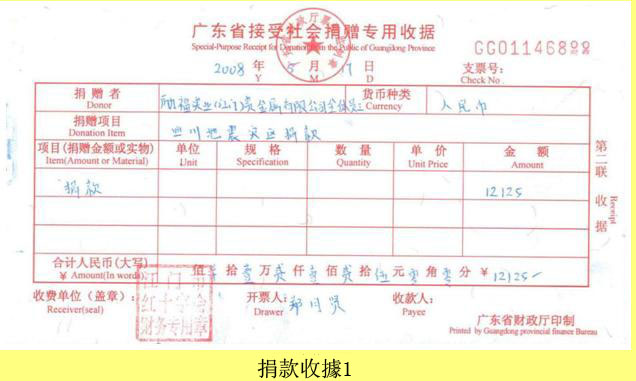 广东省接受社会捐赠专用收据
Special-Purpose Receipt for Donation from the Public of Guangdong Province
GG01146899
2008 年 5 月 17 日
Y M D
支票号:
Check No.
捐赠者 励福实业(江门)贵金属有限公司全体员工 货币种类 人民币
Donor Currency
捐赠项目 四川地震灾区捐款
Donation Item
项目(捐赠金额或实物) 单位 规格 数量 单价 金额
Item(Amount or Material) Unit Specification Quantity Unit Price Amount
捐款 12125
第二联 收据
Receipt
合计人民币(大写) 佰 拾壹万贰仟壹佰贰拾伍元零角零分 ¥ 12125-
¥ Amount(In words)
江门市
红十字会
财务专用章
收费单位(盖章): 开票人: 收款人:
Receiver(seal) Drawer Payee
广东省财政厅印制
Printed by Guangdong provincial finance Bureau
捐款收據1